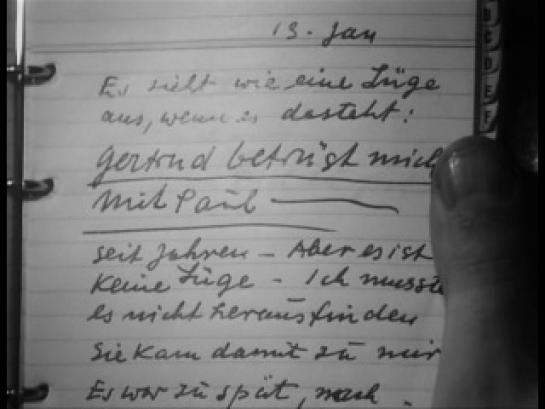 13. Jan
B
C
D
E
F
Es sieht wie eine Lüge
aus, wenn es dasteht:
Gertrud betrügt mich
mit Paul —
seit Jahren - Aber es ist
keine Lüge - Ich musste
es nicht herausfinden
Sie kam damit zu mir
Es war zu spät, nach -